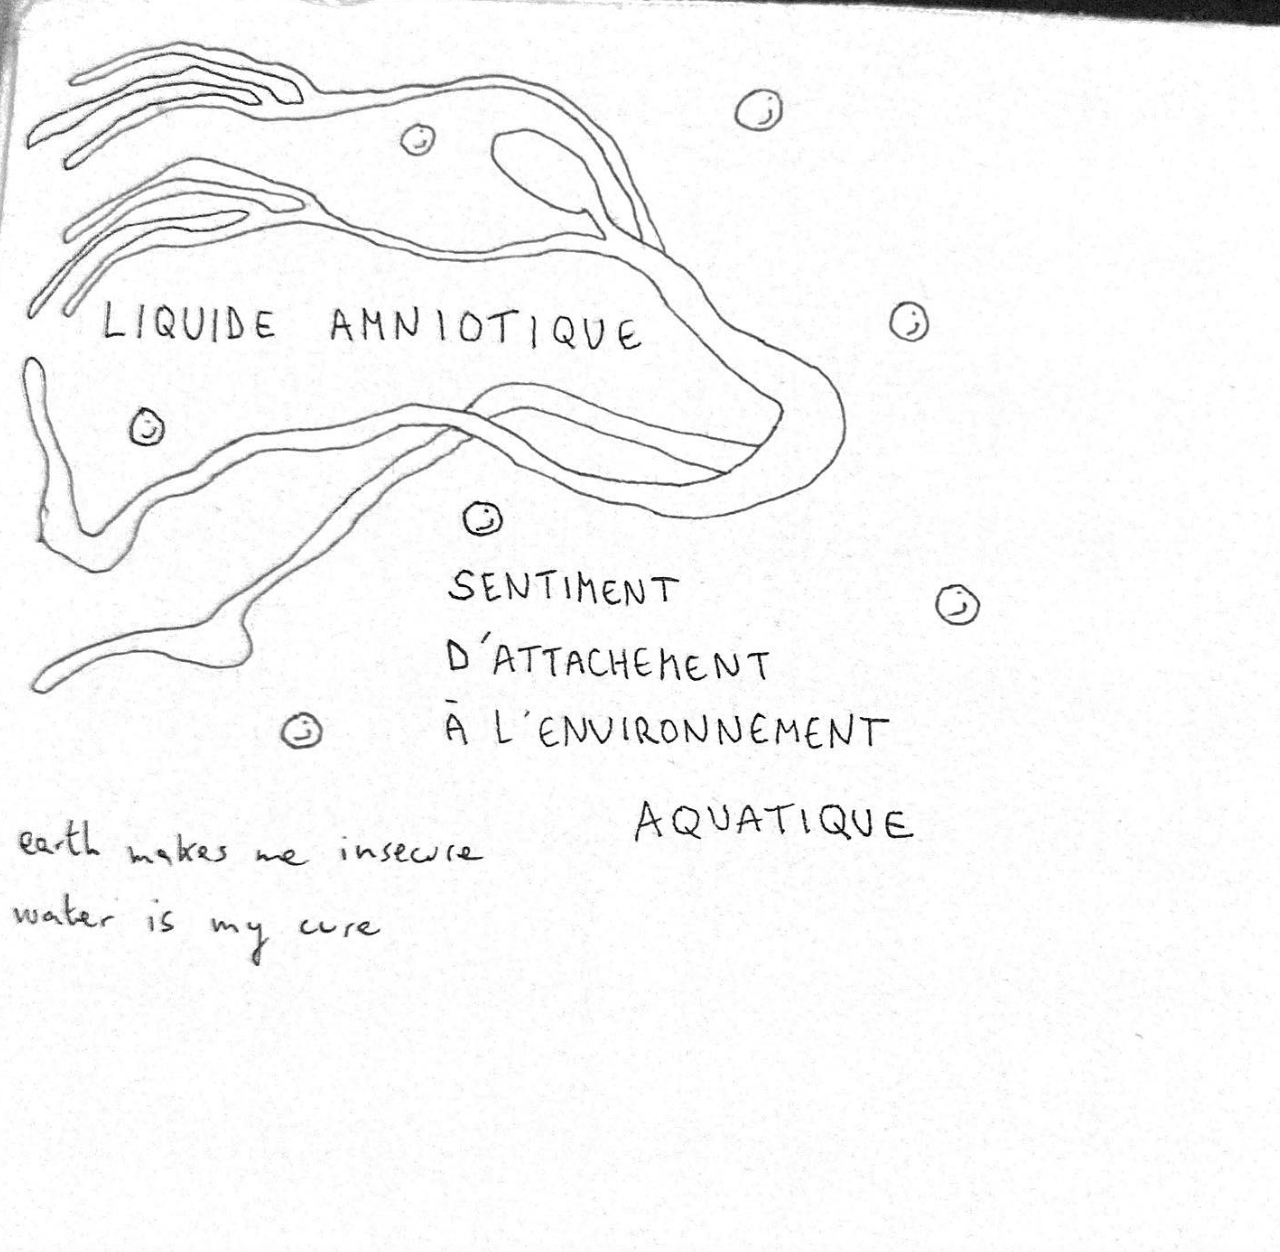 LIQUIDE AMNIOTIQUE
SENTIMENT
D'ATTACHEMENT
À L'ENVIRONNEMENT
AQUATIQUE
earth makes me insecure
water is my cure